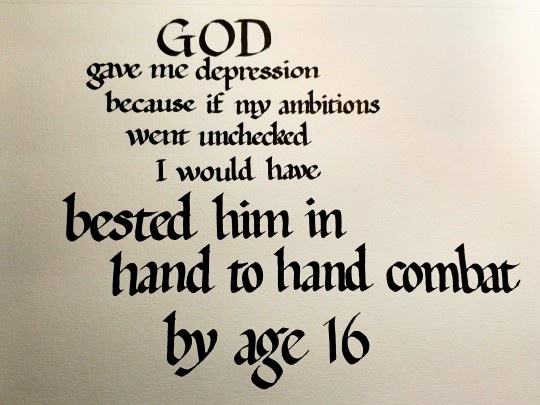 GOD
gave me depression
because if my ambitions
went unchecked
I would have
bested him in
hand to hand combat
by age 16